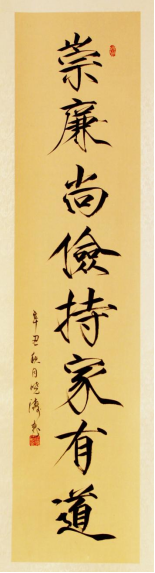 崇廉尚儉持家有道
辛丑秋月晓涛书